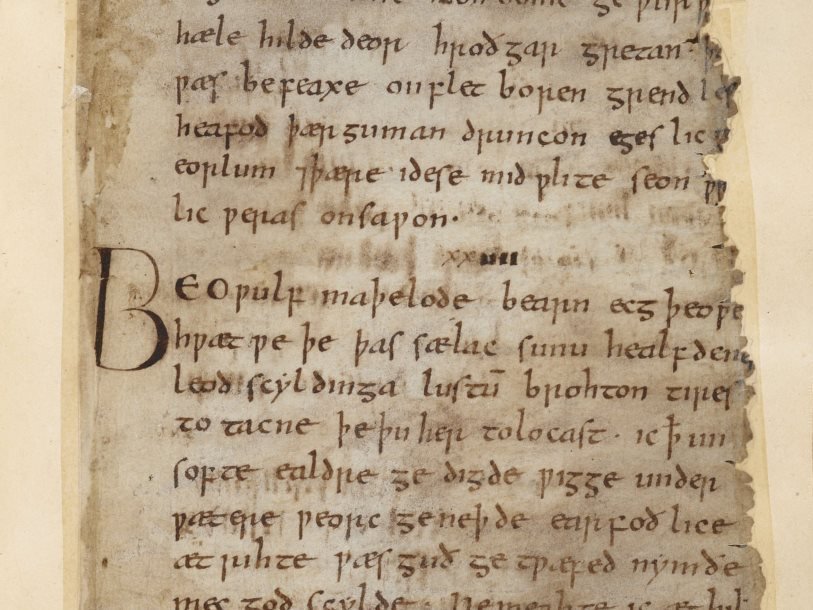 dome ge ƿurþ
hæle hilde deor hroðgar gretan· þ
ƿæs be feaxe onflet boren grend les
heafod þær guman druncon eges lic
eorlum ⁊þære idese mid ƿlite seon ƿr
lic ƿeras onsaƿon·
xxiiii
BEOƿulf maþelode bearn ecg þeoƿe
hƿæt ƿe þe þas sælac sunu healfdene
leod scyldinga lustū brohton tires
to tacne þe þu her tolocast· ic ꝥ un
softe ealdre ge digde ƿigge under
ƿætere ƿeorc ge neþde earfoð lice
æt rihte ƿæs guð ge tƿæfed nymðe
mec god scylde· Nemeahte ic æt hil